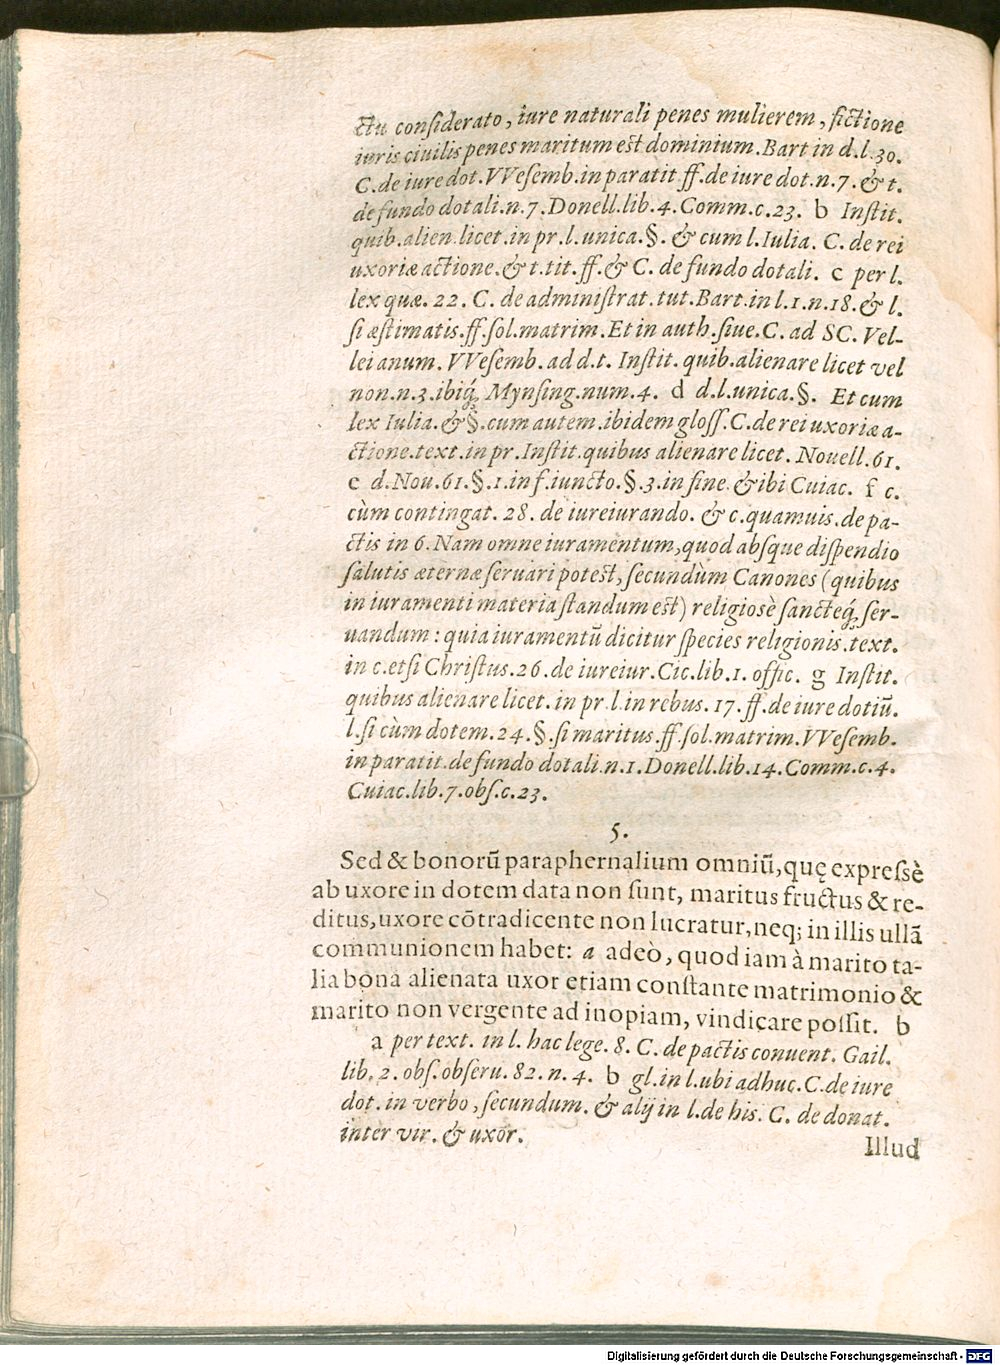 ctu considerato, iure naturali penes mulierem, fictione
iuris ciuilis penes maritum est dominium. Bart in d. l. 30.
C. de iure dot. VVesemb. in paratit ff. de iure dot. n. 7. & t.
de fundo dotali. n. 7. Donell. lib. 4. Comm. c. 23. b Instit.
quib. alien licet. in pr. l. unica. §. & cum l. Iulia. C. de rei
uxoriæ actione. & t. tit. ff. & C. de fundo dotali. c per l.
lex quæ. 22. C. de administrat. tut. Bart. in l. 1. n. 18. & l.
si æstimatis. ff. sol. matrim. Et in auth. siue. C. ad SC. Vel-
leianum. VVesemb. ad d. t. Instit. quib. alienare licet vel
non. n. 3. ibiq́; Mynsing. num. 4. d d. l. unica. §. Et cum
lex Iulia. & §. cum autem. ibidem gloss. C. de rei uxoriæ a-
ctione. text. in pr. Instit. quibus alienare licet. Nouell. 61.
e d. Nou. 61. §. 1. in f. iuncto. §. 3. in fine. & ibi Cuiac. f c.
cùm contingat. 28. de iureiurando. & c. quamuis. de pa-
ctis in 6. Nam omne iuramentum, quod absque dispendio
salutis æternæ seruari potest, secundùm Canones (quibus
in iuramenti materia standum est) religiosè sancteq́; ser-
uandum: quia iuramentũ dicitur species religionis. text.
in c. etsi Christus. 26. de iureiur. Cic. lib. 1. offic. g Instit.
quibus alienare licet. in pr. l. in rebus. 17. ff. de iure dotiũ.
l. si cùm dotem. 24. §. si maritus. ff. sol. matrim. VVesemb.
in paratit. de fundo dotali. n. 1. Donell. lib. 14. Comm. c. 4.
Cuiac. lib. 7. obs. c. 23.
5.
Sed & bonorũ paraphernalium omniũ, quę expressè
ab uxore in dotem data non sunt, maritus fructus & re-
ditus, uxore cõtradicente non lucratur, neq; in illis ullã
communionem habet: a adeò, quod iam à marito ta-
lia bona alienata uxor etiam constante matrimonio &
marito non vergente ad inopiam, vindicare possit. b
a per text. in l. hac lege. 8. C. de pactis conuent. Gail.
lib. 2. obs. obseru. 82. n. 4. b gl. in l. ubi adhuc. C. de iure
dot. in verbo, secundum. & alij in l. de his. C. de donat.
inter vir. & uxor.
Illud
Digitalisierung gefördert durch die Deutsche Forschungsgemeinschaft - DFG